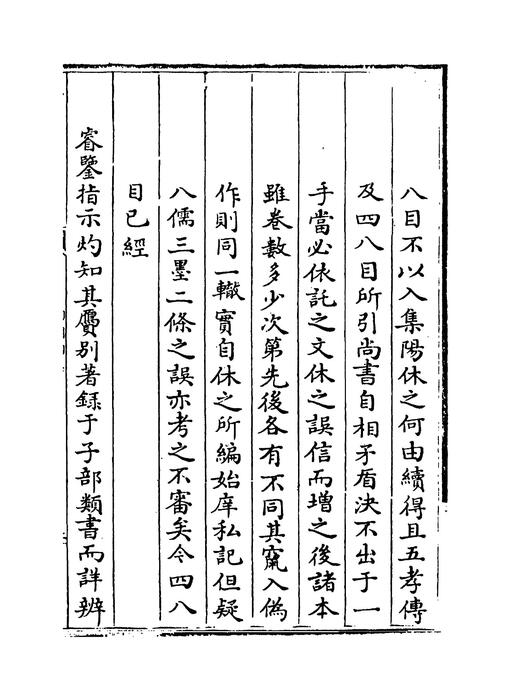 八目不以入集陽休之何由續得且五孝傳
及四八目所引尚書自相矛盾決不出于一
手當必依託之文休之誤信而增之後諸本
雖卷數多少次第先後各有不同其竄入偽
作則同一轍實自休之所編始庠私記但疑
八儒三墨二條之誤亦考之不審矣今四八
目已經
睿鑒指示灼知其贋別著錄于子部類書而詳辨